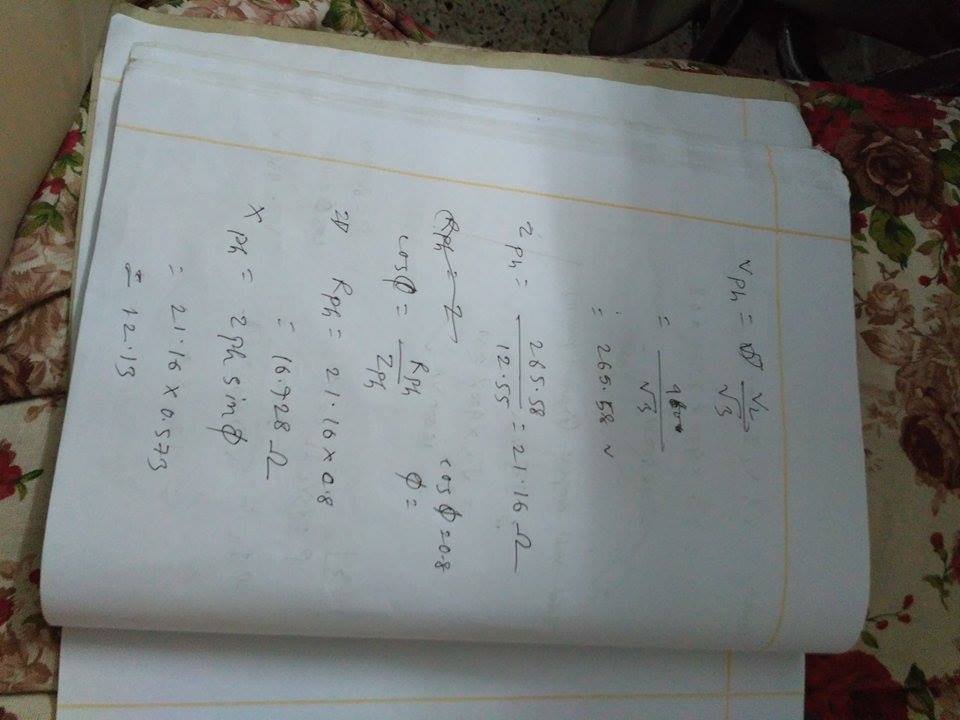 V ph = VL / √3
= / √3
= 265.58 v
Z ph = 265.58 / 12.55 = 21.16 Ω
Rph = Z cos ϕ = 0.8
cos ϕ = Rph / Zph ϕ =
⇒ Rph = 21.16 × 0.8
= 16.928 Ω
X ph = Zph sin ϕ
= 21.16 × 0.573
= 12.13